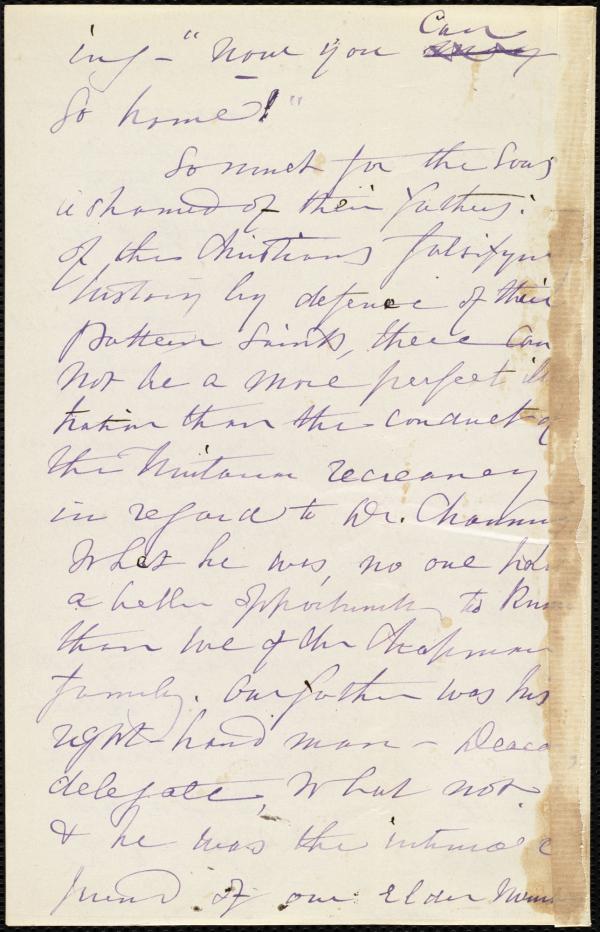 ing - "Now you can
Go home!"
So much for the Sons
ashamed of their Fathers:
of the Christians falsifyin
history by defence of their
Pattern Saints, there can
not be a more perfect ill
tration than the conduct of
the Unitarian recreancy
in regard to Dr. Channin
What he was, no one had
a better opportunity to Know
than we of the Chapman
family. Our father was his
right-hand man - Deaco
delegate, What not
& he was the intimate
friend of our elder mem